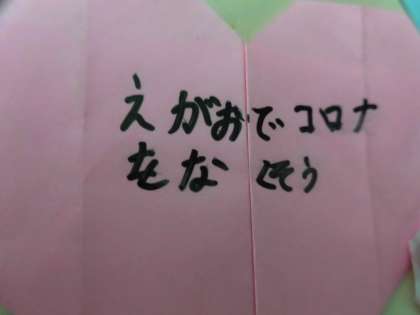 えがおでコロナ
をなくそう